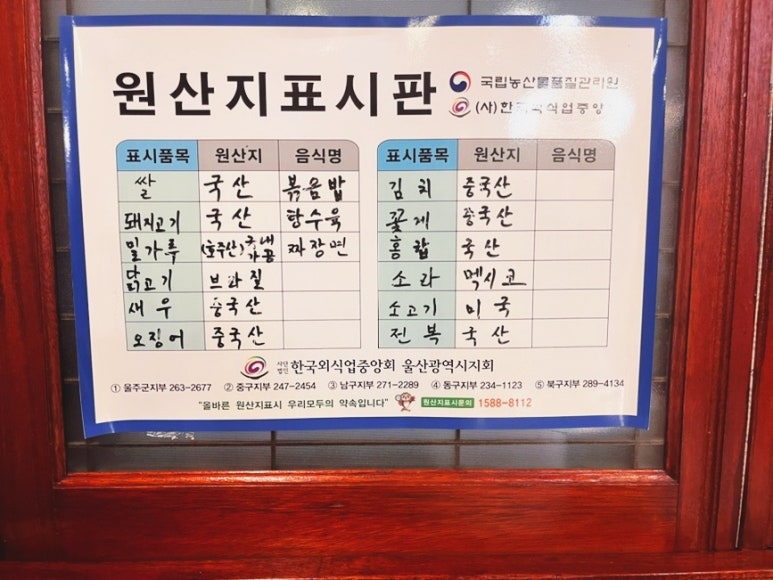 원산지표시판
국립농산물품질관리원
(사)한국외식업중앙
표시품목 원산지 음식명
쌀 국산 볶음밥
돼지고기 국산 탕수육
밀가루 (호주산)국내가공 짜장면
닭고기 브라질
새우 중국산
오징어 중국산
표시품목 원산지 음식명
김치 중국산
꽃게 중국산
홍합 국산
소라 멕시코
소고기 미국
전복 국산
사단법인 한국외식업중앙회 울산광역시지회
① 울주군지부 263-2677 ② 중구지부 247-2454 ③ 남구지부 271-2289 ④ 동구지부 234-1123 ⑤ 북구지부 289-4134
"올바른 원산지표시 우리모두의 약속입니다" 원산지표시문의 1588-8112